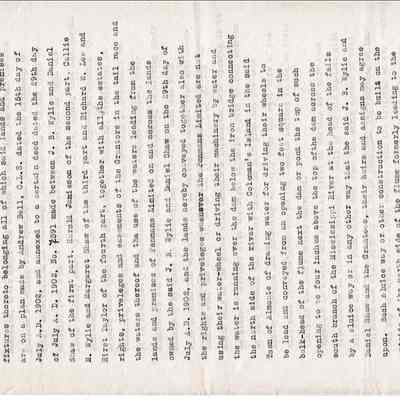 fixtures thereto belonging all of which said lands and premises
are on a plan made by Andrew Bell, C.L.S. dated the 15th day of
July A.D. 1902, and annexed to a certain deed dated the 29th day
of July A. D. 1902, No. 7991 made between J. B. Wylie and Daniel
Shaw of the first part, Gerald of the second part. Callie
H. Wylie and Margaret Shaw of the third part and Richard H. Lee and
First Taylor of the fourth part, together with all the estates,
rights, privileges and easements of the Grantors in the tail race and
the waters thereof and the use of the waters leading from the
lands and premises of annexes limited on and across the lands
owned by the said J. B. Wylie and Daniel Shaw on the 29th day of
July A.D. 1902 and the lands hereby conveyed together also with
the rights and privileges whenever the annexes limited are not
using their water-wheel or driving their machinery by water and
the water is running over the dam below the iron bridge connecting
the north side of the river with Coleman's Island in the said
Town of Almonte of drawing water for driving their wheels to
be used and conveyed from an opening two feet square in the
bulk-head of the flume at the dam or pond as up of such
opening to be four inches above the top of the dam across the
south branch of the Mississippi River at the head of the falls
by a sluice way or in any other way that the said J. B. Wylie and
Daniel Shaw and the Grantees, their heirs and assigns may agree
upon. Such sluice way or other construction to be built on the
of the flume formerly leading to the